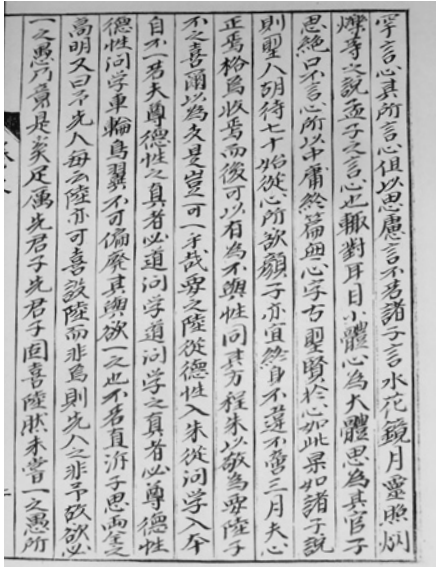 罕言心其所言心但以思慮言不若諸子言水花鏡月靈照烱
爍等之說孟子之言心也輙對耳目小體心為大體思為其官子
思絕口不言心所以中庸終篇無心字古聖賢於心如此果如諸子說
則聖人胡待七十始從心所欲顏子亦宜終身不違不啻三月夫心
正焉格為收焉而後可以有為不與性同其方程朱以敬為要陸子
不之喜爾以為支是豈可一乎哉要之陸從德性入朱從問學入本
自不一若夫尊德性之真者必道問學道問學之真者必尊德性
德性問學車輪鳥翼不可偏廢其與欲一之也不若直泝子思兩全之
高明又曰不先人每云陸亦可喜設陸而非焉則先人之非予故欲必
一之愚乃竟是矣足厲先君子先君子固喜陸肰未嘗一之愚所